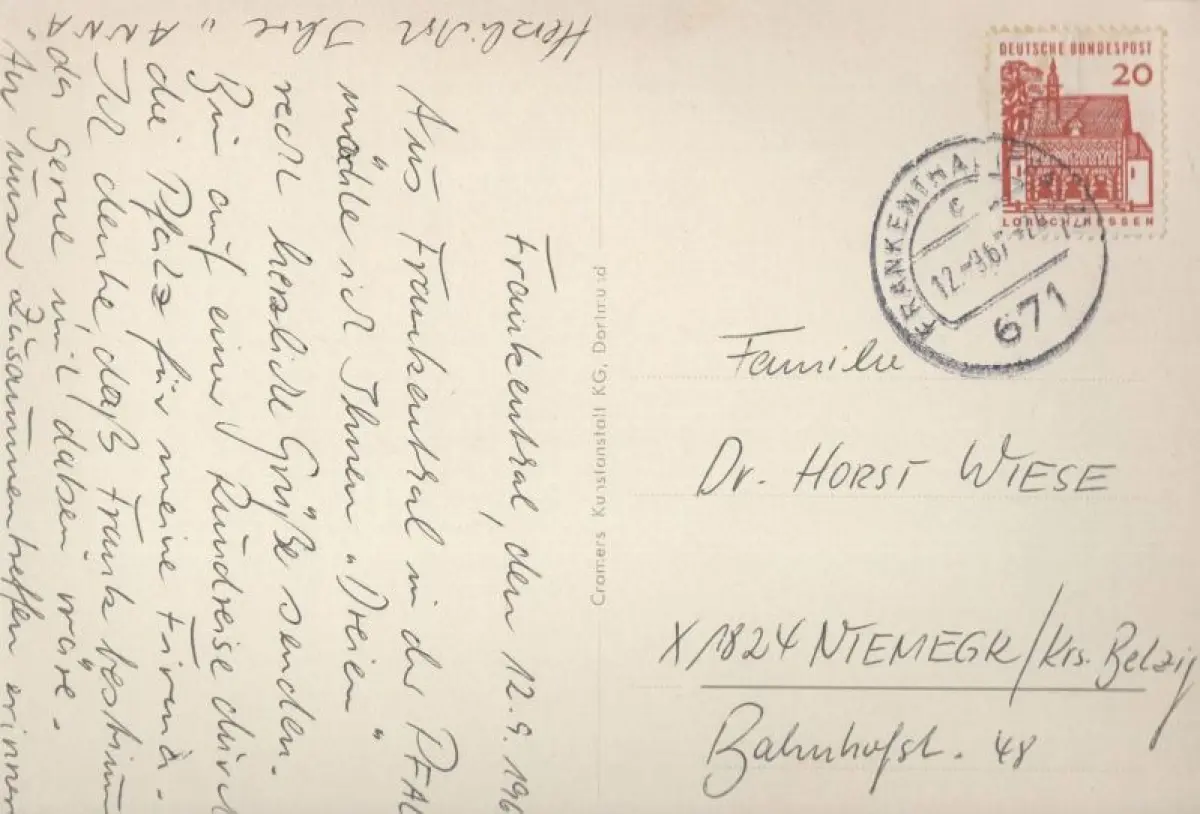 DEUTSCHE BUNDESPOST
20
LORSCH/HESSEN
FRANKENTHAL
c
12.-9.67
671
Familie
Dr. HORST WIESE
X 1824 NIEMEGK/Krs. Belzig
Bahnhofstr. 48
Cramers Kunstanstalt KG, Dortmund
Frankenthal, den 12.9.196
Aus Frankenthal in der PFAL
möchte ich Ihnen „Dreien"
recht herzliche Grüße senden.
Bin auf einer Rundreise durch
die Pfalz für meine Firma.
Ich denke daß Frank bestimm
da gerne mit dabei wäre.
An unser Zusammentreffen erinner
Herzlichst
Ihre